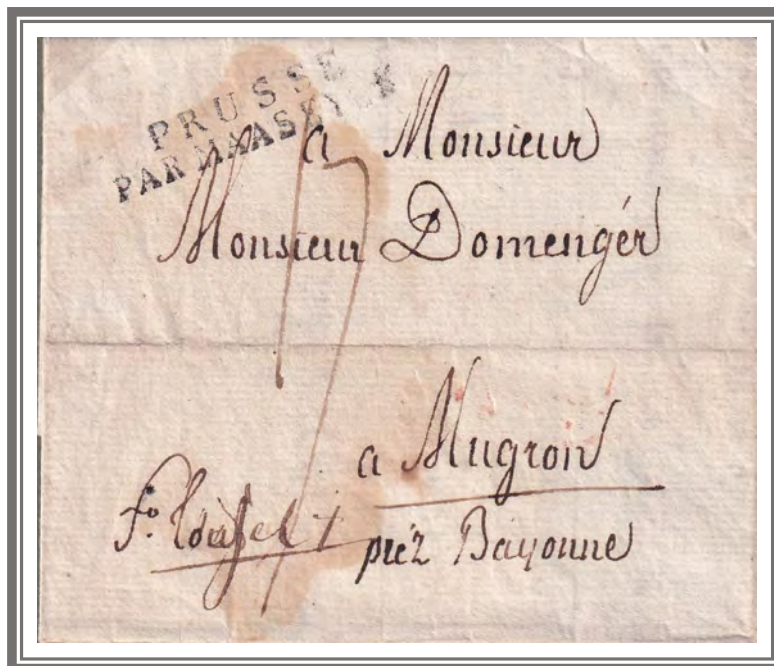 PRUSSE
PAR MAASEYCK
a Monsieur
Monsieur Domengér
a Mugron
préz Bayonne
fo.